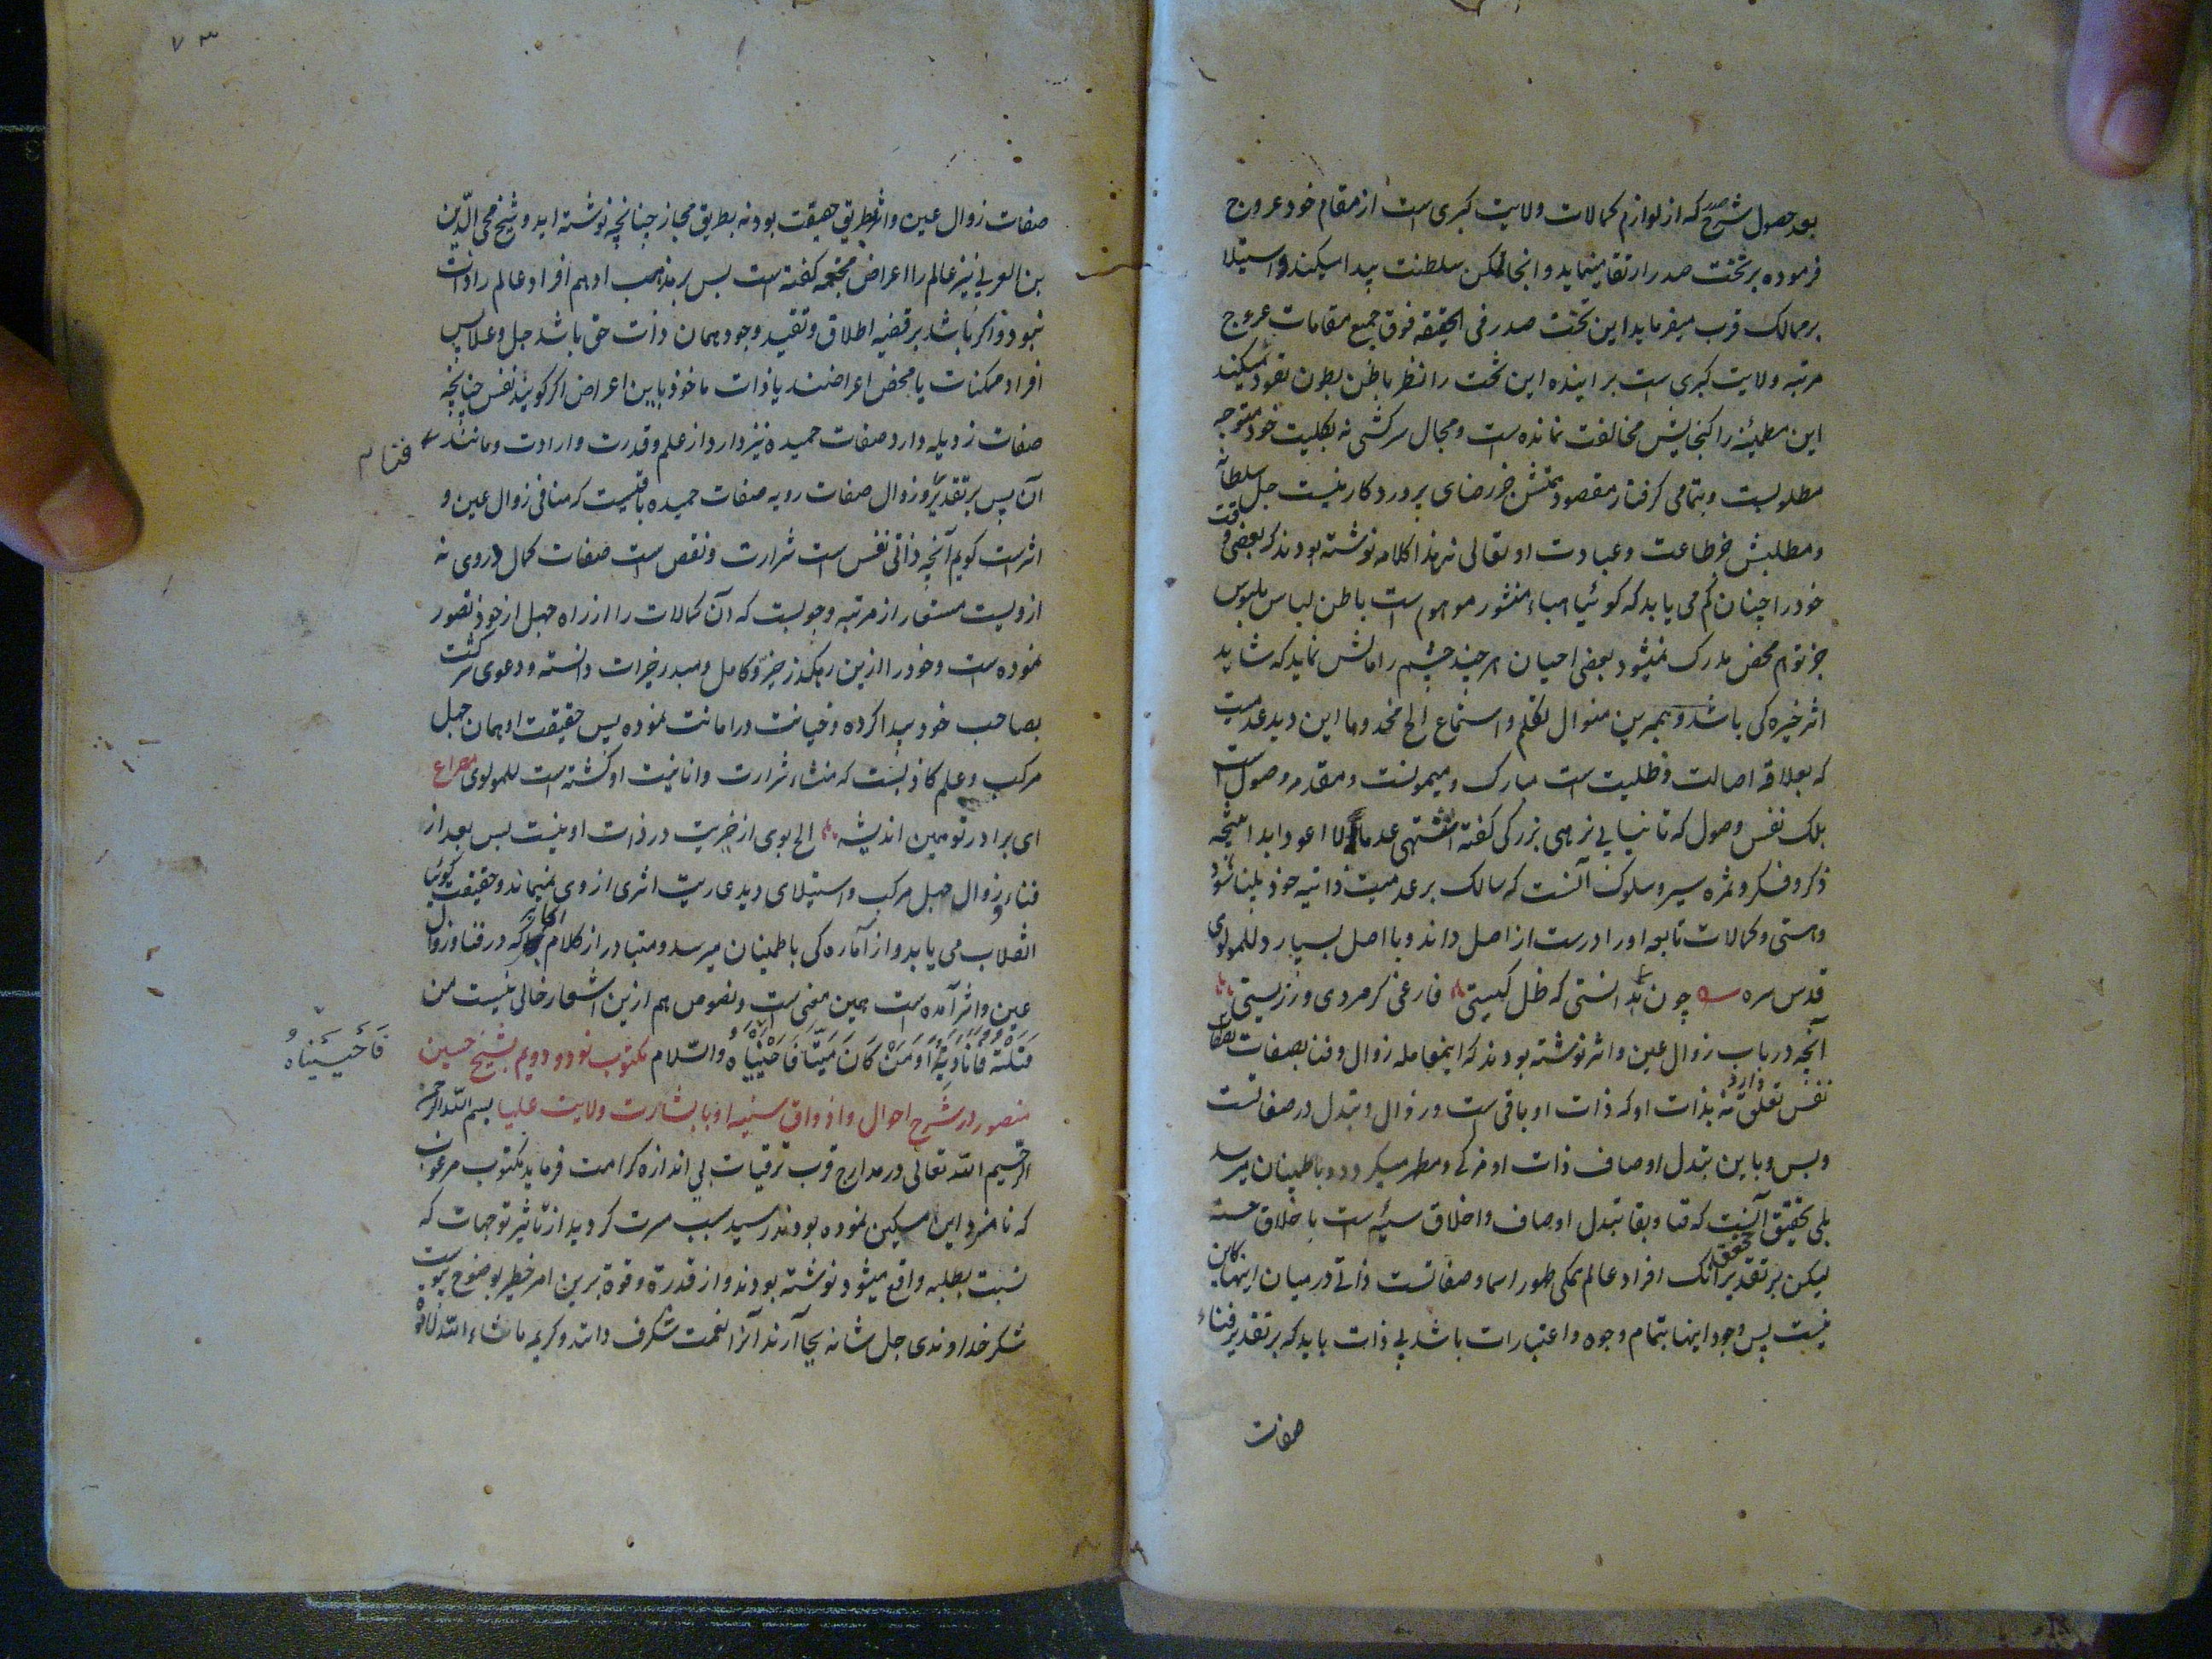 بعد حصول شرح صدر که از لوازم کمالات ولایت کبری است از مقام خود عروج
فرموده بر تخت صدر ارتقا مینماید و انجا تمکن سلطنت پیدا میکند و استیلا
بر ممالک قرب میفرماید این تخت صدر فی الحقیقه فوق جمیع مقامات عروج
مرتبه ولایت کبری است بر اینده این تخت را نظر باطن بطون نفوذ میکند
این مطمئنه را کنجایش مخالفت نمانده است و مجال سرکشی نه بکلیت خود متوجه
مطلوبست و بتمامی کرفتار مقصود همتش جز رضای پروردکار نیست جل سلطانه
و مطلبش جز طاعت و عبادت او تعالی نه هذا کلامه نوشته بودند که بعضی وقت
خود را چنان کم می یابد که کوئیا هباء منثور موهوم است باطن لباس ملبوس
جز توهم محض مدرک نمیشود بعضی احیان هر چند چشم را مالش نماید که شاید
اثر خیره کی باشد و همبرین منوال تکلم و استماع الخ مخدوما این دید عدمیت
که بعلاقه اصالت و ظلیت است مبارک و میمونست و مقدمه وصول است
بلک نفس وصول که تا نیابی نرهی بزرکی کفته اشتهی عدما لا اعود ابدا نتیجه
ذکر و فکر و ثمره سیر و سلوک آنست که سالک بر عدمیت ذاتیه خود بینا شود
و هستی و کمالات تابعه او را درست از اصل داند و با اصل بسپارد للمولوی
قدس سره چون بدانستی که ظل کیستی فارغی کر مردی ور زیستی
آنچه در باب زوال عین و اثر نوشته بودند که اینمعامله زوال و فنا بصفات
نفس تعلق دارد نه بذات او که ذات او باقی است و زوال و تبدل در صفاتست
و بس و باین تبدل اوصاف ذات او مزکی و مطهر میکردد و باطمینان میرسد
بلی تحقیق آنست که فنا و بقا تبدل اوصاف و اخلاق سیئه است باخلاق حسنه
لیکن بر تقدیر تحقق آنک افراد عالم همکی ظهور اسما و صفاتست ذاتی در میان اینها کاین
نیست پس وجود اینها بتمام وجوه و اعتبارات باشد بی ذات باید که بر تقدیر فناء
صفات
۷۳
صفات زوال عین و اثر بطریق حقیقت بود نه بطریق مجاز چنانچه نوشته اید و شیخ محی الدین
بن العربی نیز عالم را اعراض مجتمعه کفته است پس بر مذهب او هم افراد عالم را ذات
نبود و اکر باشد بر قضیه اطلاق و تقیید وجود همان ذات حق باشد جل و علا پس
افراد ممکنات یا محض اعراضند یا ذات ماخوذ باین اعراض اکر کویند نفس چنانچه
صفات رذیله دارد صفات حمیده نیز دارد از علم و قدرت و ارادت و مانند
آن پس بر تقدیر و زوال صفات رویه صفات حمیده باقیست که منافی زوال عین و
فنا م
اثر است کویم آنچه ذاتی نفس است شرارت و نقص است صفات کمال در وی نه
از ویست مستعار از مرتبه وجوبست که آن کمالات را از راه جهل از خود تصور
نموده است و خود را ازین رهکذر خیر و کامل و مبدر خیرات دانسته و دعوی شرکت
بصاحب خود پیدا کرده و خیانت در امانت نموده پس حقیقت او همان جهل
مرکب و علم کاذبست که منشاء شرارت و انانیت او کشته است للمولوی مصراع
ای برادر تو همین اندیشه الخ بوی از خیریت در ذات او نیست پس بعد از
فناء و زوال جهل مرکب و استیلای دید عاریت اثری از وی نمیماند و حقیقت کوئیا
انقلاب می یابد و از آماره کی باطمینان میرسد و متبادر از کلام اکابر که در فنا و زوال
عین و اثر آمده است همین معنی است و نصوص هم ازین اشعار خالی نیست من
قتلته فانا دیته أو من کان میتا فاحییناه والسلام مکتوب نود و دویم بشیخ حسین
فَأَحْيَيْنَاهُ
منصور در شرح احوال و اذواق سنیه او با بشارت ولایت علیا بسم الله الرحمن
الرحیم الله تعالی در مدارج قرب ترقیات بی اندازه کرامت فرماید مکتوب مرغوب
که نامزد این مسکین نموده بودند رسید سبب مسرت کردید از تاثیر توجهات که
نسبت بطلبه واقع میشود نوشته بودند و از قدرة و قوة برین امر خطیر بوضوح پیوست
شکر خداوندی جل شانه بجا آرند آنرا نعمت شکرف دانند و کریمه ما شاء الله لا قوة